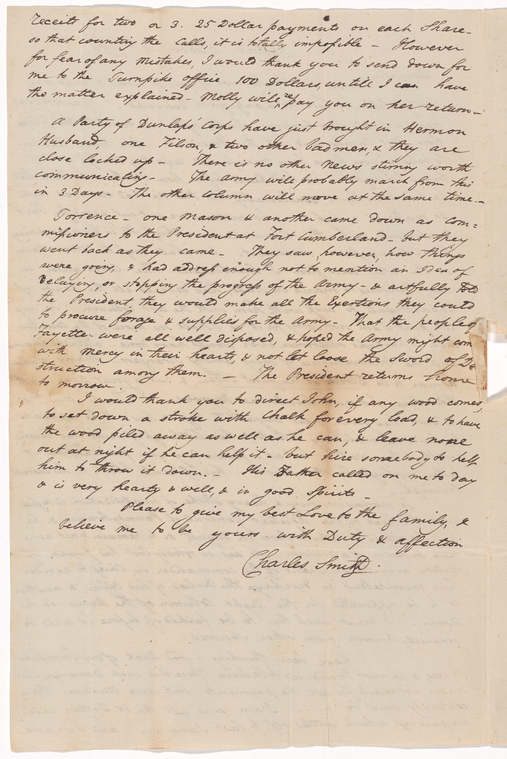 receits for two or 3. 25 Dollar payments on each Share-
so that counting the Calls, it is totally impossible - However
for fear of any Mistakes, I would thank you to send down for
me to the Turnpike office 100 Dollars, untill I can have
the matter explained - Molly will repay you on her return -
A Party of Dunlaps' Corps have just brought in Hermon
Husband, one Filson, & two other Badmen, & they are
close locked up - There is no other News stirring worth
communicating - The Army will probably march from this
in 3 Days - The other Column will move at the same time. -
Torrence - one Mason & another came down as Com=
missioners to the President at Fort Cumberland - but they
went back as they came - They saw, however, how things
were going, & had address enough not to mention an Idea of
delaying, or stopping the progress of the Army - & artfully told
the President, they would make all the Exertions they could
to procure forage & supplies for the Army - That the people of
Fayette were all well disposed, & hoped the Army might com
with mercy in their hearts, & not let loose the Sword of De
struction among them. - The President returns Home
to morrow.
I would thank you to direct John, if any wood comes,
to set down a stroke with Chalk for every load, & to have
the wood piled away as well as he can, & leave none
out at night if he can help it - but hire somebody to help
him to throw it down. - His Father called on me to day
& is very hearty & well, & in good Spirits -
Please to give my best Love to the family, &
believe me to be yours with Duty & affection
Charles Smith.